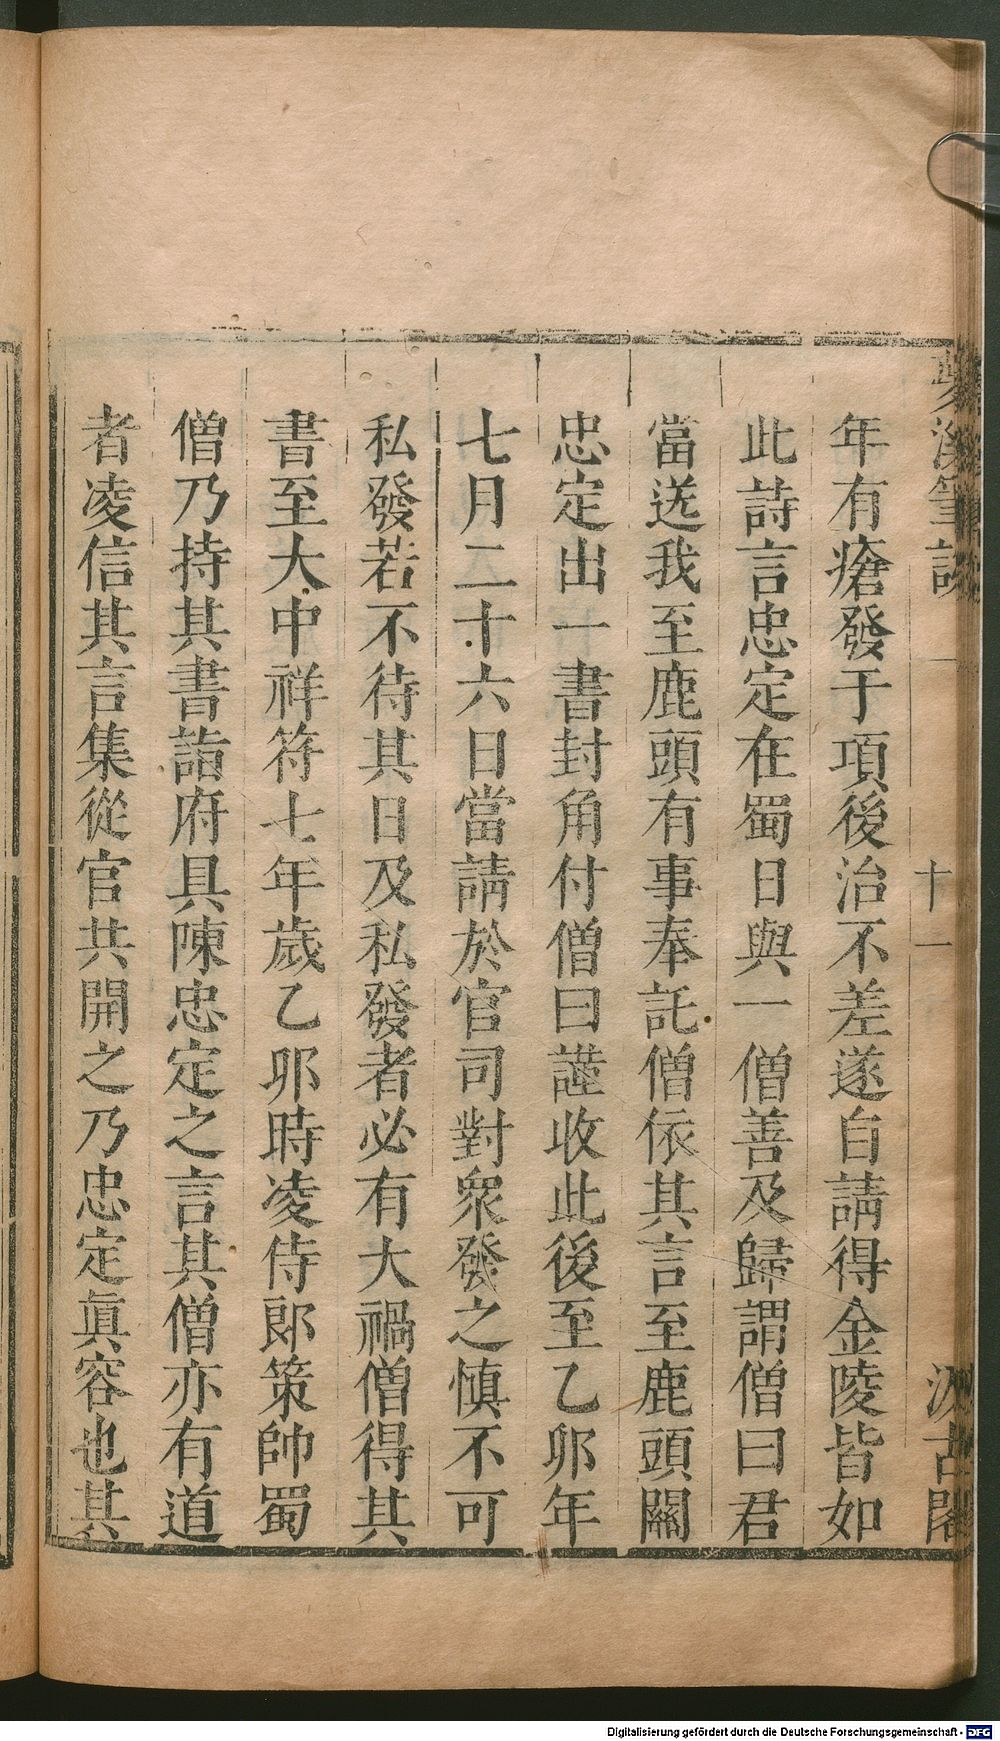 夢溪筆談
十一
汲古閣
年有瘡發于項後治不差遂自請得金陵皆如
此詩言忠定在蜀日與一僧善及歸謂僧曰君
當送我至鹿頭有事奉託僧依其言至鹿頭關
忠定出一書封角付僧曰謹收此後至乙卯年
七月二十六日當請於官司對衆發之慎不可
私發若不待其日及私發者必有大禍僧得其
書至大中祥符七年歲乙卯時凌侍郎策帥蜀
僧乃持其書詣府具陳忠定之言其僧亦有道
者凌信其言集從官共開之乃忠定眞容也其
Digitalisierung gefördert durch die Deutsche Forschungsgemeinschaft - DFG